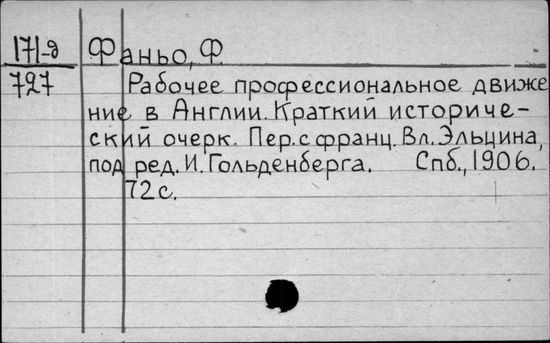 171-д Фаньо, Ф.
727 Рабочее профессиональное движе
ние в Англии. Краткий историче-
ский очерк. Пер. с франц. Вл. Эльцина,
под ред. И. Гольденберга. Спб., 1906.
72 с.